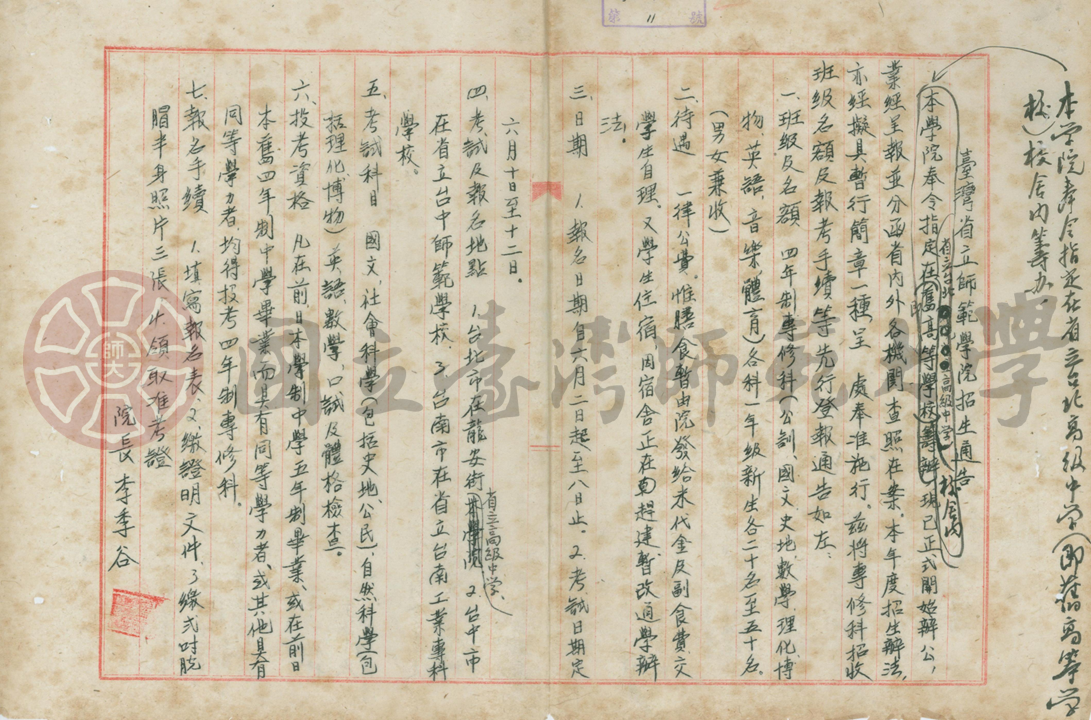 第 11 號
本學院奉令指定在省立台北高級中學(即舊高等學
校)校舍內籌办
臺灣省立師範學院招生通告
本學院奉令指定在舊高等學校籌辦現已正式開始辦公,
省立台北高級中學
即
校舍內
業經呈報並分函省內外各機関查照在案。本年度招生辦法,
亦經擬具暫行簡章一種呈 處奉准施行。茲將專修科招收
班級名額及報考手續等先行登報通告如左:
一、班級及名額 四年制專修科(公訓、國文史地數學理化博
物、英語、音樂、體育)各科一年級新生各二十名至五十名。
(男女兼收)
二、待遇 一律公費,惟膳食暫由院發給米代金及副食費,交
學生自理。又學生住宿,因宿舍正在趕建,暫改通學辦
法。
三、日期 1.報名日期自六月二日起至八日止。2.考試日期定
六月十日至十二日。
四、考試及報名地點 1.台北市在龍安街本學院 2.台中市
省立高級中學
在省立台中師範學校 3.台南市在省立台南工業專科
學校。
五、考試科目 國文,社會科學(包括史地、公民),自然科學(包
括理化博物)英語,數學,口試及體格檢查。
六、投考資格 凡在前日本學制中學五年制畢業、或在前日
本舊四年制中學畢業而具有同等學力者、或其他具有
同等學力者,均得投考四年制專修科。
七、報名手續 1.填寫報名表 2.繳證明文件 3.繳弍吋脫
帽半身照片三張 4.領取准考證
院長 李季谷
國立臺灣師範大學
師大